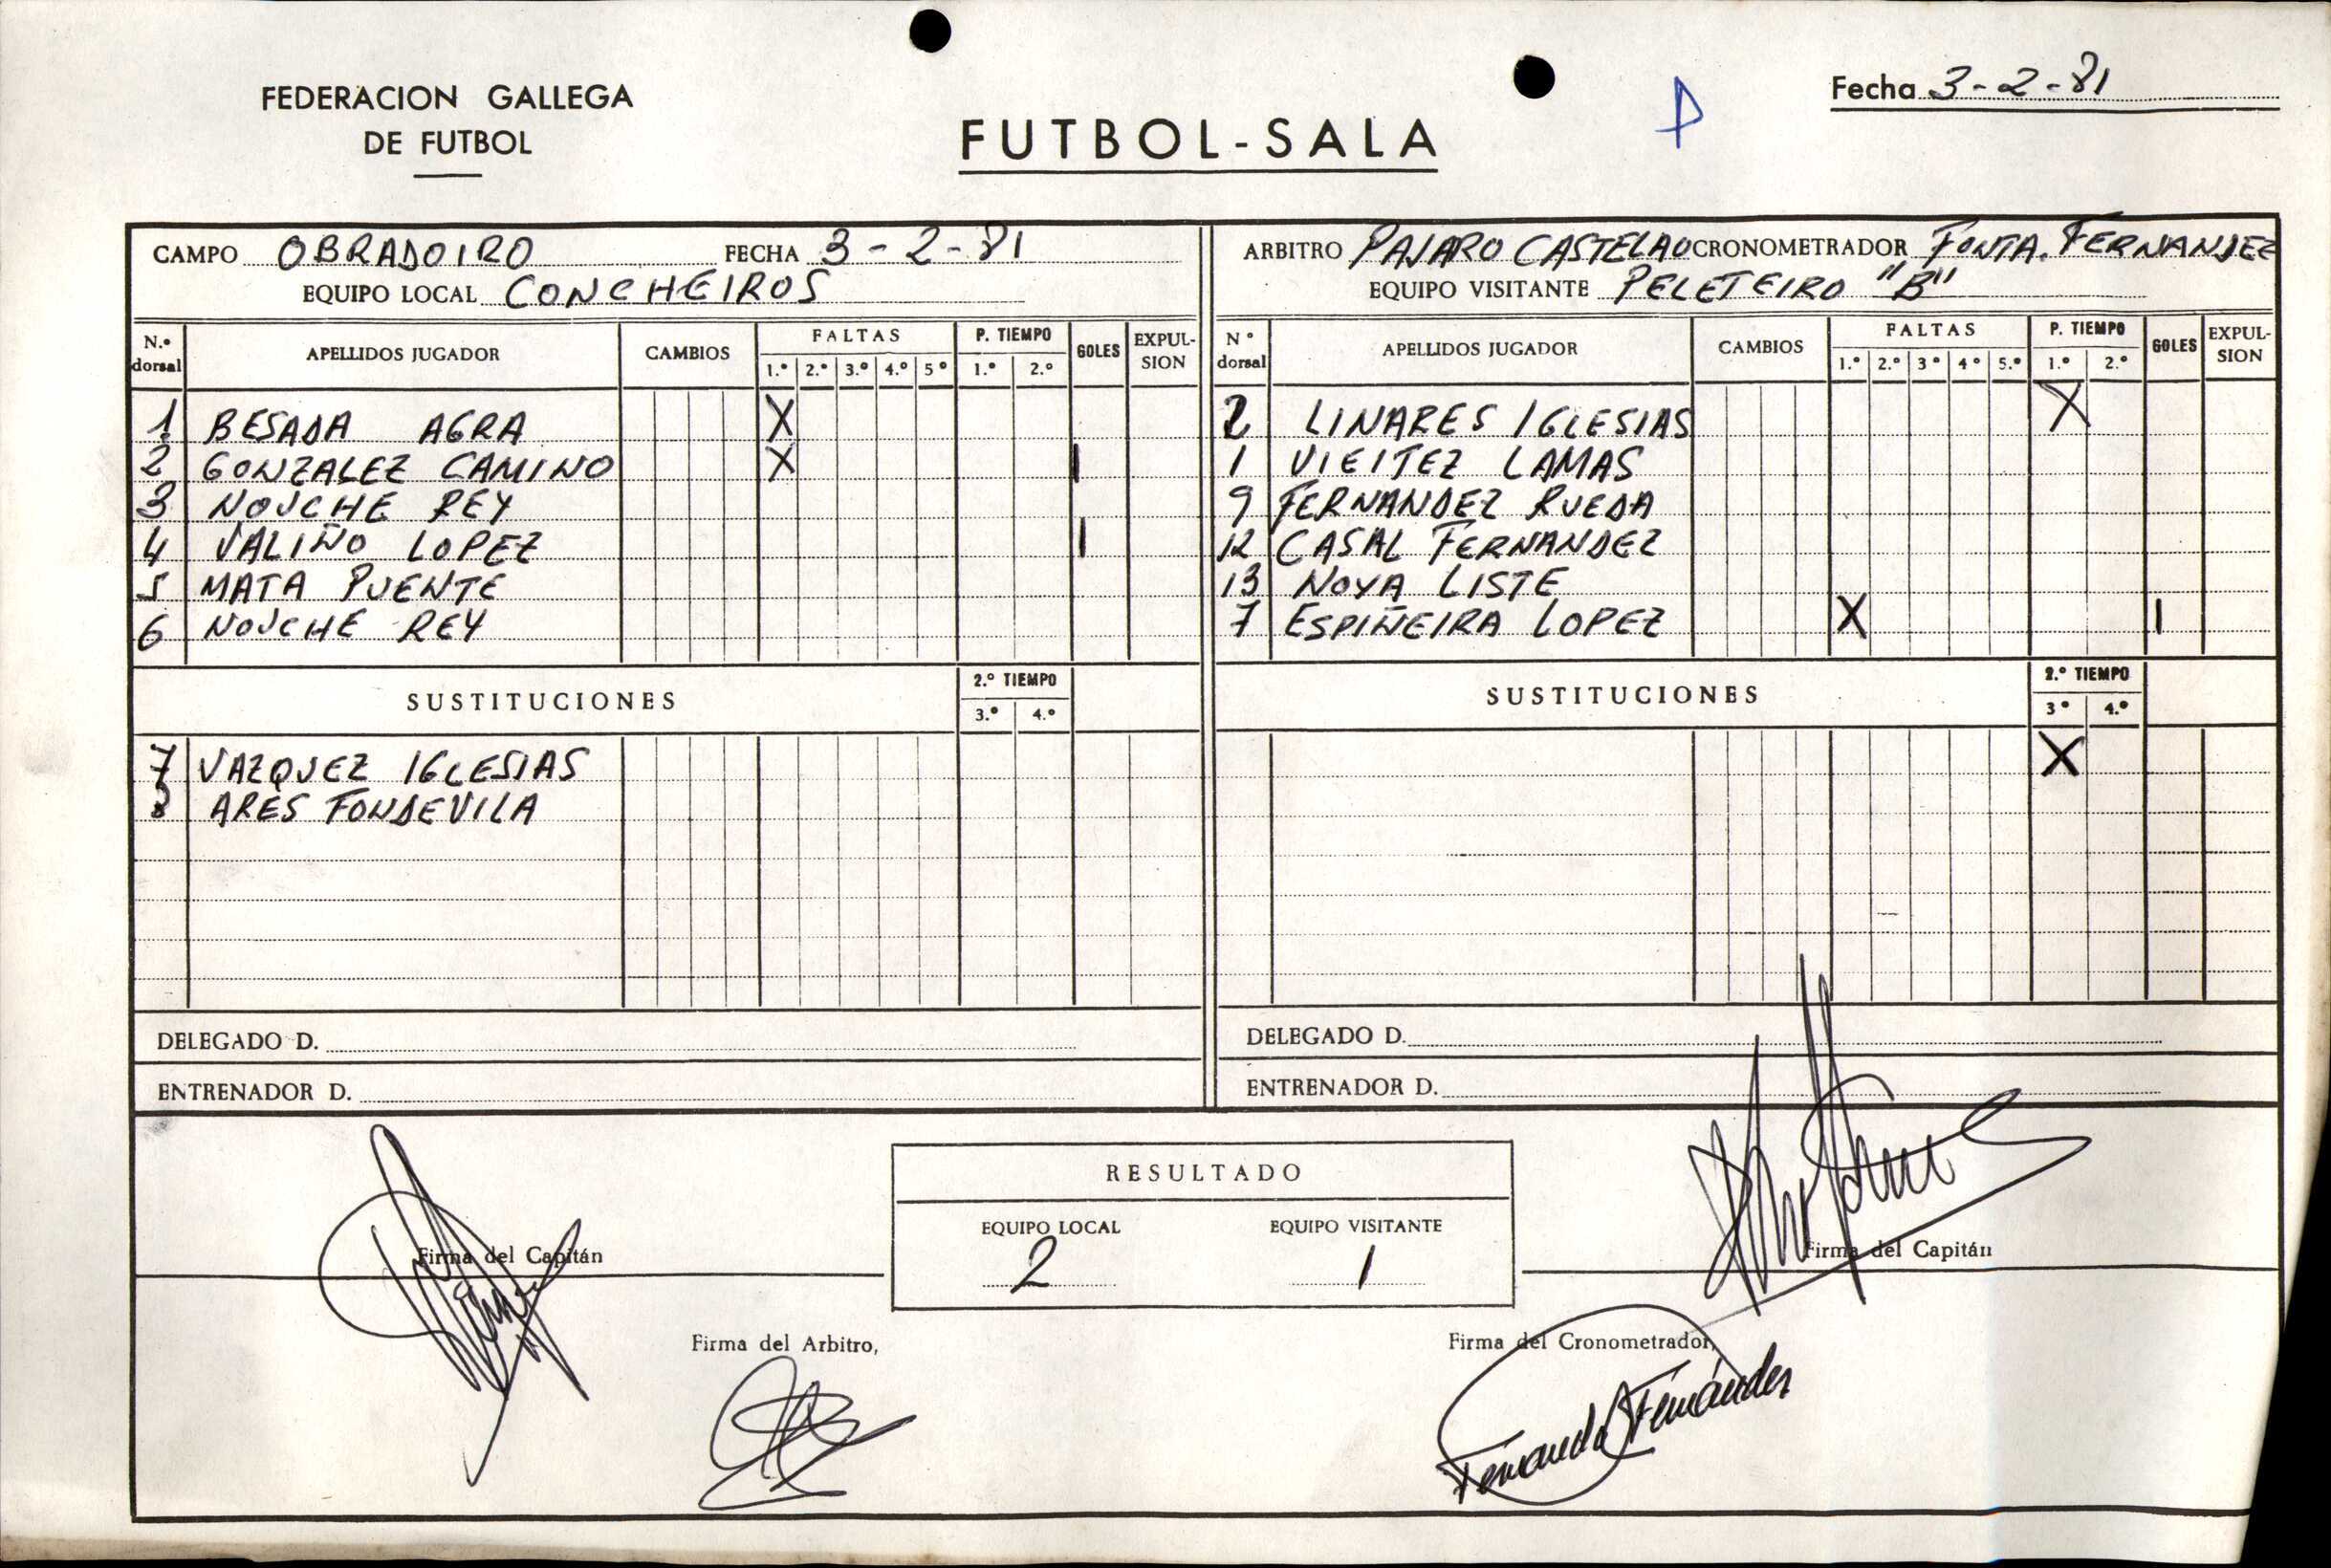 FEDERACION GALLEGA
DE FUTBOL
FUTBOL-SALA
P
Fecha 3-2-81
CAMPO OBRADOIRO FECHA 3-2-81
EQUIPO LOCAL CONCHEIROS
N.º dorsal APELLIDOS JUGADOR CAMBIOS FALTAS 1.º 2.º 3.º 4.º 5º P. TIEMPO 1.º 2.º GOLES EXPULSION
1 BESADA AGRA X
2 GONZALEZ CAMINO X 1
3 NOUCHE REY
4 VALIÑO LOPEZ 1
5 MATA PUENTE
6 NOUCHE REY
SUSTITUCIONES 2.º TIEMPO 3.º 4.º
7 VAZQUEZ IGLESIAS
8 ARES FONDEVILA
DELEGADO D.
ENTRENADOR D.
ARBITRO PAJARO CASTELAO CRONOMETRADOR FONTA. FERNANDEZ
EQUIPO VISITANTE PELETEIRO "B"
Nº dorsal APELLIDOS JUGADOR CAMBIOS FALTAS 1.º 2.º 3º 4º 5.º P. TIEMPO 1.º 2.º GOLES EXPULSION
2 LINARES IGLESIAS X
1 VIEITEZ LAMAS
9 FERNANDEZ RUEDA
12 CASAL FERNANDEZ
13 NOYA LISTE
7 ESPIÑEIRA LOPEZ X 1
SUSTITUCIONES 2.º TIEMPO 3º 4.º
X
DELEGADO D.
ENTRENADOR D.
RESULTADO
EQUIPO LOCAL EQUIPO VISITANTE
2 1
Firma del Capitán
Firma del Capitán
Firma del Arbitro,
Firma del Cronometrador,
Fernando Fernández